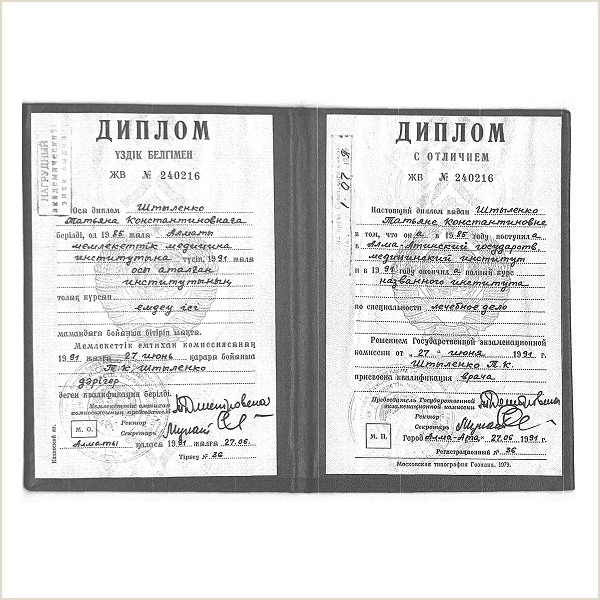 НАГРУДНЫЙ
академический
знак выдан
ДИПЛОМ
ҮЗДІК БЕЛГІМЕН
ЖВ № 240216
Осы диплом Штыленко
Татьяна Константиновнаға
берілді, ол 1985 жалы Алматы
мемлекеттік медицина
институтына түсіп, 1991 жалы
осы аталған
институтының
толық курсын
емдеу ісі
мамандығы бойынша бітіріп шықты.
Мемлекеттік емтихан комиссиясының
1991 жалғы 27 июнь қарары бойынша
Т.К. Штыленко
дәрігер
деген квалификация берілді.
Мемлекеттік емтихан
комиссиясының председателі
Ректор
Секретарь
М. О.
Алматы қаласы 1991 жалғы 27.06.
Тіркеу № 36
Казахский яз.
ДИПЛОМ
С ОТЛИЧИЕМ
ЖВ № 240216
Настоящий диплом выдан Штыленко
Татьяне Константиновне
в том, что она в 1985 году поступила
в Алма-Атинский государств.
медицинский институт
и в 1991 году окончила полный курс
названного института
по специальности лечебное дело
Решением Государственной экзаменационной
комиссии от „27“ июня 1991 г.
Штыленко Т.К.
присвоена квалификация врача
Председатель Государственной
экзаменационной комиссии
Ректор
Секретарь
М. П.
Город Алма-Ата, 27.06 1991 г.
Регистрационный № 36
Московская типография Гознака. 1979.